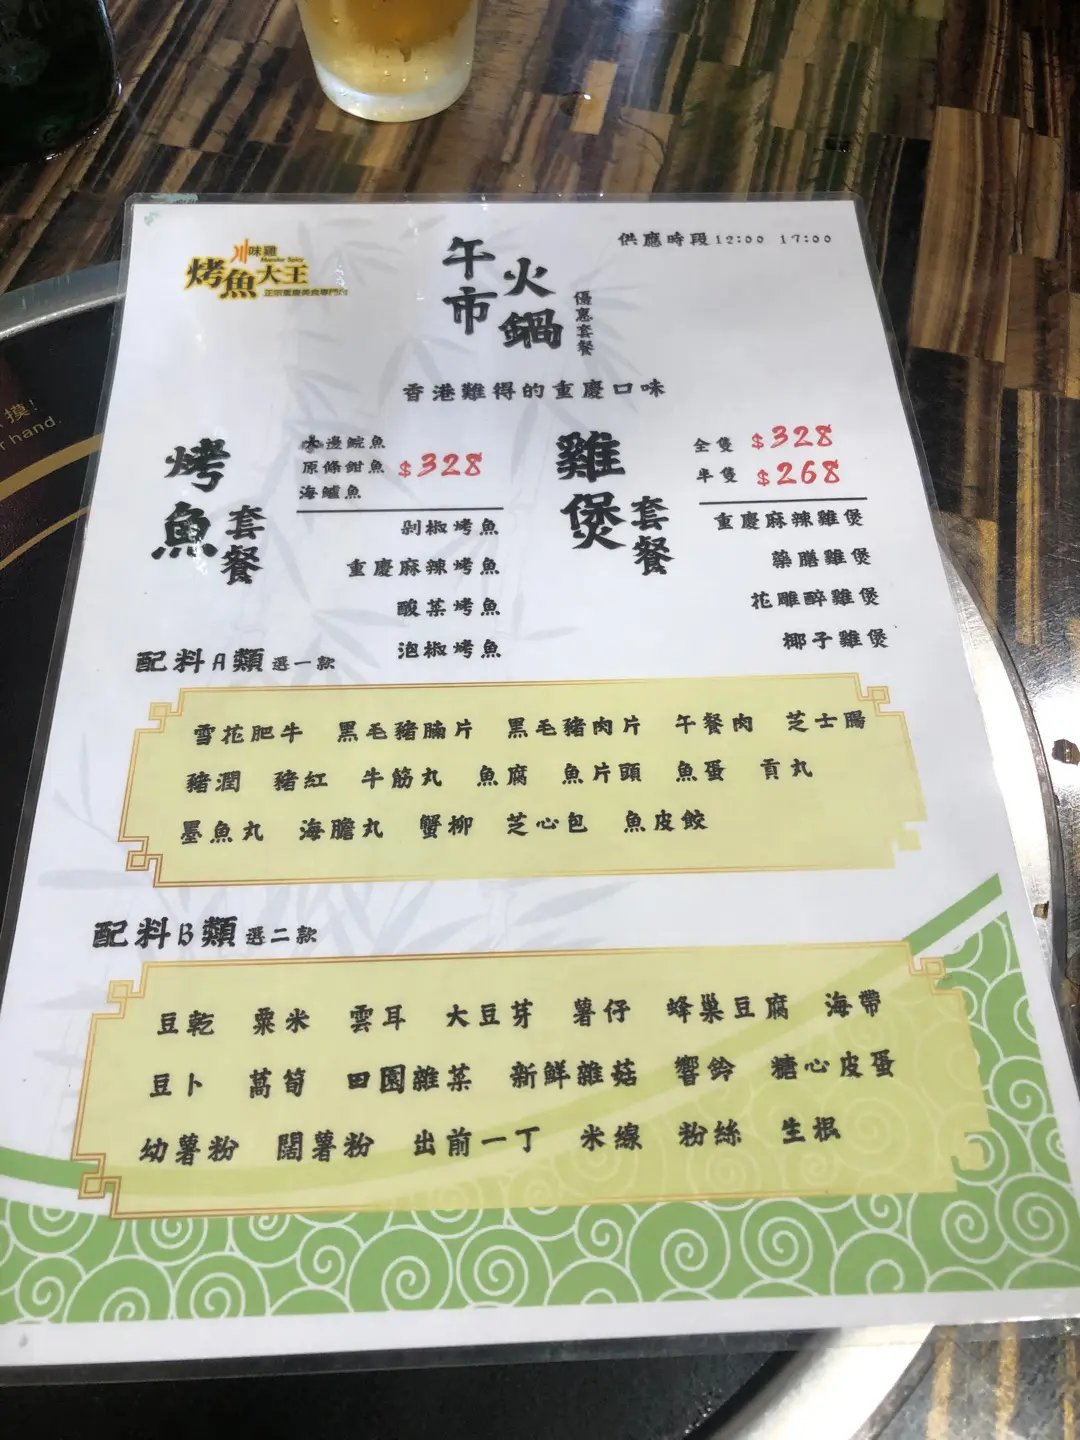 川味雞
Mander Spicy
烤魚大王
正宗重慶美食專門店
午市
火鍋
優惠套餐
供應時段12:00 17:00
香港難得的重慶口味
摸!
r hand.
烤魚
套餐
水邊鯇魚
原條鉗魚 $328
海鱸魚
剁椒烤魚
重慶麻辣烤魚
酸菜烤魚
泡椒烤魚
雞煲
套餐
全隻 $328
半隻 $268
重慶麻辣雞煲
藥膳雞煲
花雕醉雞煲
椰子雞煲
配料A類 選一款
雪花肥牛 黑毛豬腩片 黑毛豬肉片 午餐肉 芝士腸
豬潤 豬紅 牛筋丸 魚腐 魚片頭 魚蛋 貢丸
墨魚丸 海膽丸 蟹柳 芝心包 魚皮餃
配料B類 選二款
豆乾 粟米 雲耳 大豆芽 薯仔 蜂巢豆腐 海帶
豆卜 萵筍 田園雜菜 新鮮雜菇 響鈴 糖心皮蛋
幼薯粉 闊薯粉 出前一丁 米線 粉絲 生根